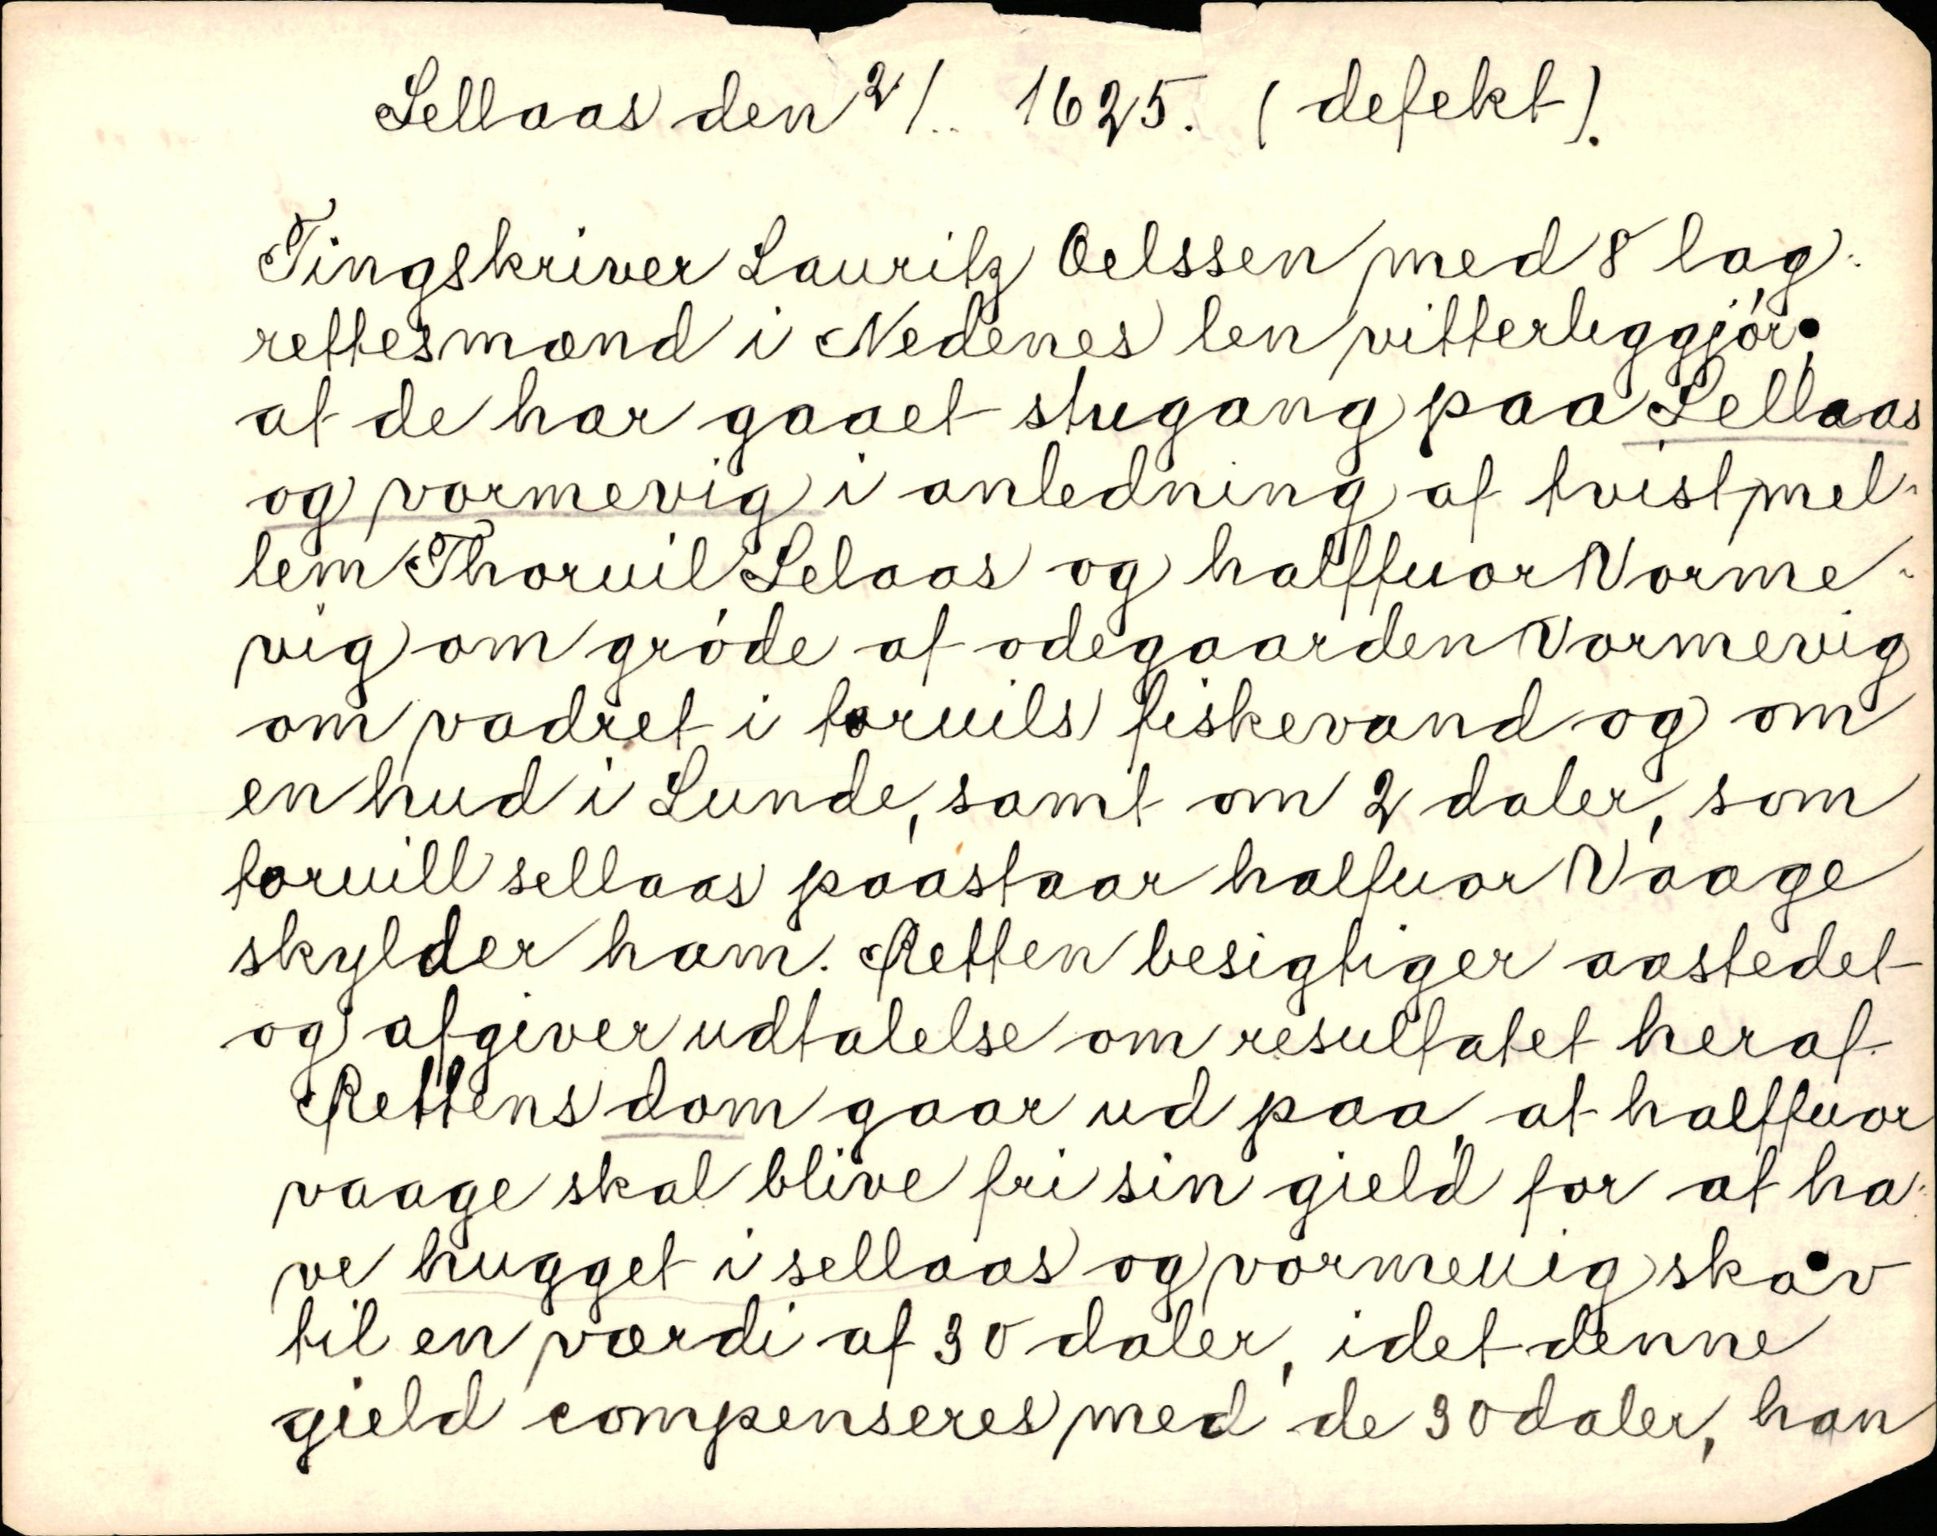 Sellaas den 2/.. 1625. (defekt).
Tingskriver Lauritz Oelssen med 8 lag-
rettesmænd i Nedenes len vitterliggjör,
at de har gaaet stugang paa Sellaas
og vormevig i anledning af tvist mel-
lem Thoruil Selaas og halffuor Vorme-
vig om gröde af ödegaarden Vormevig
om vadret i toruils fiskevand og om
en hud i Lunde, samt om 2 daler, som
toruill sellaas paastaar halfuor Vaage
skylder ham. Retten besigtiger aastedet
og afgiver udtalelse om resultatet heraf.
Rettens dom gaar ud paa, at halffuor
vaage skal blive fri sin gield for at ha-
ve hugget i sellaas og vormeuig skov
til en værdi af 30 daler, idet denne
gield compenseres med de 30 daler, han